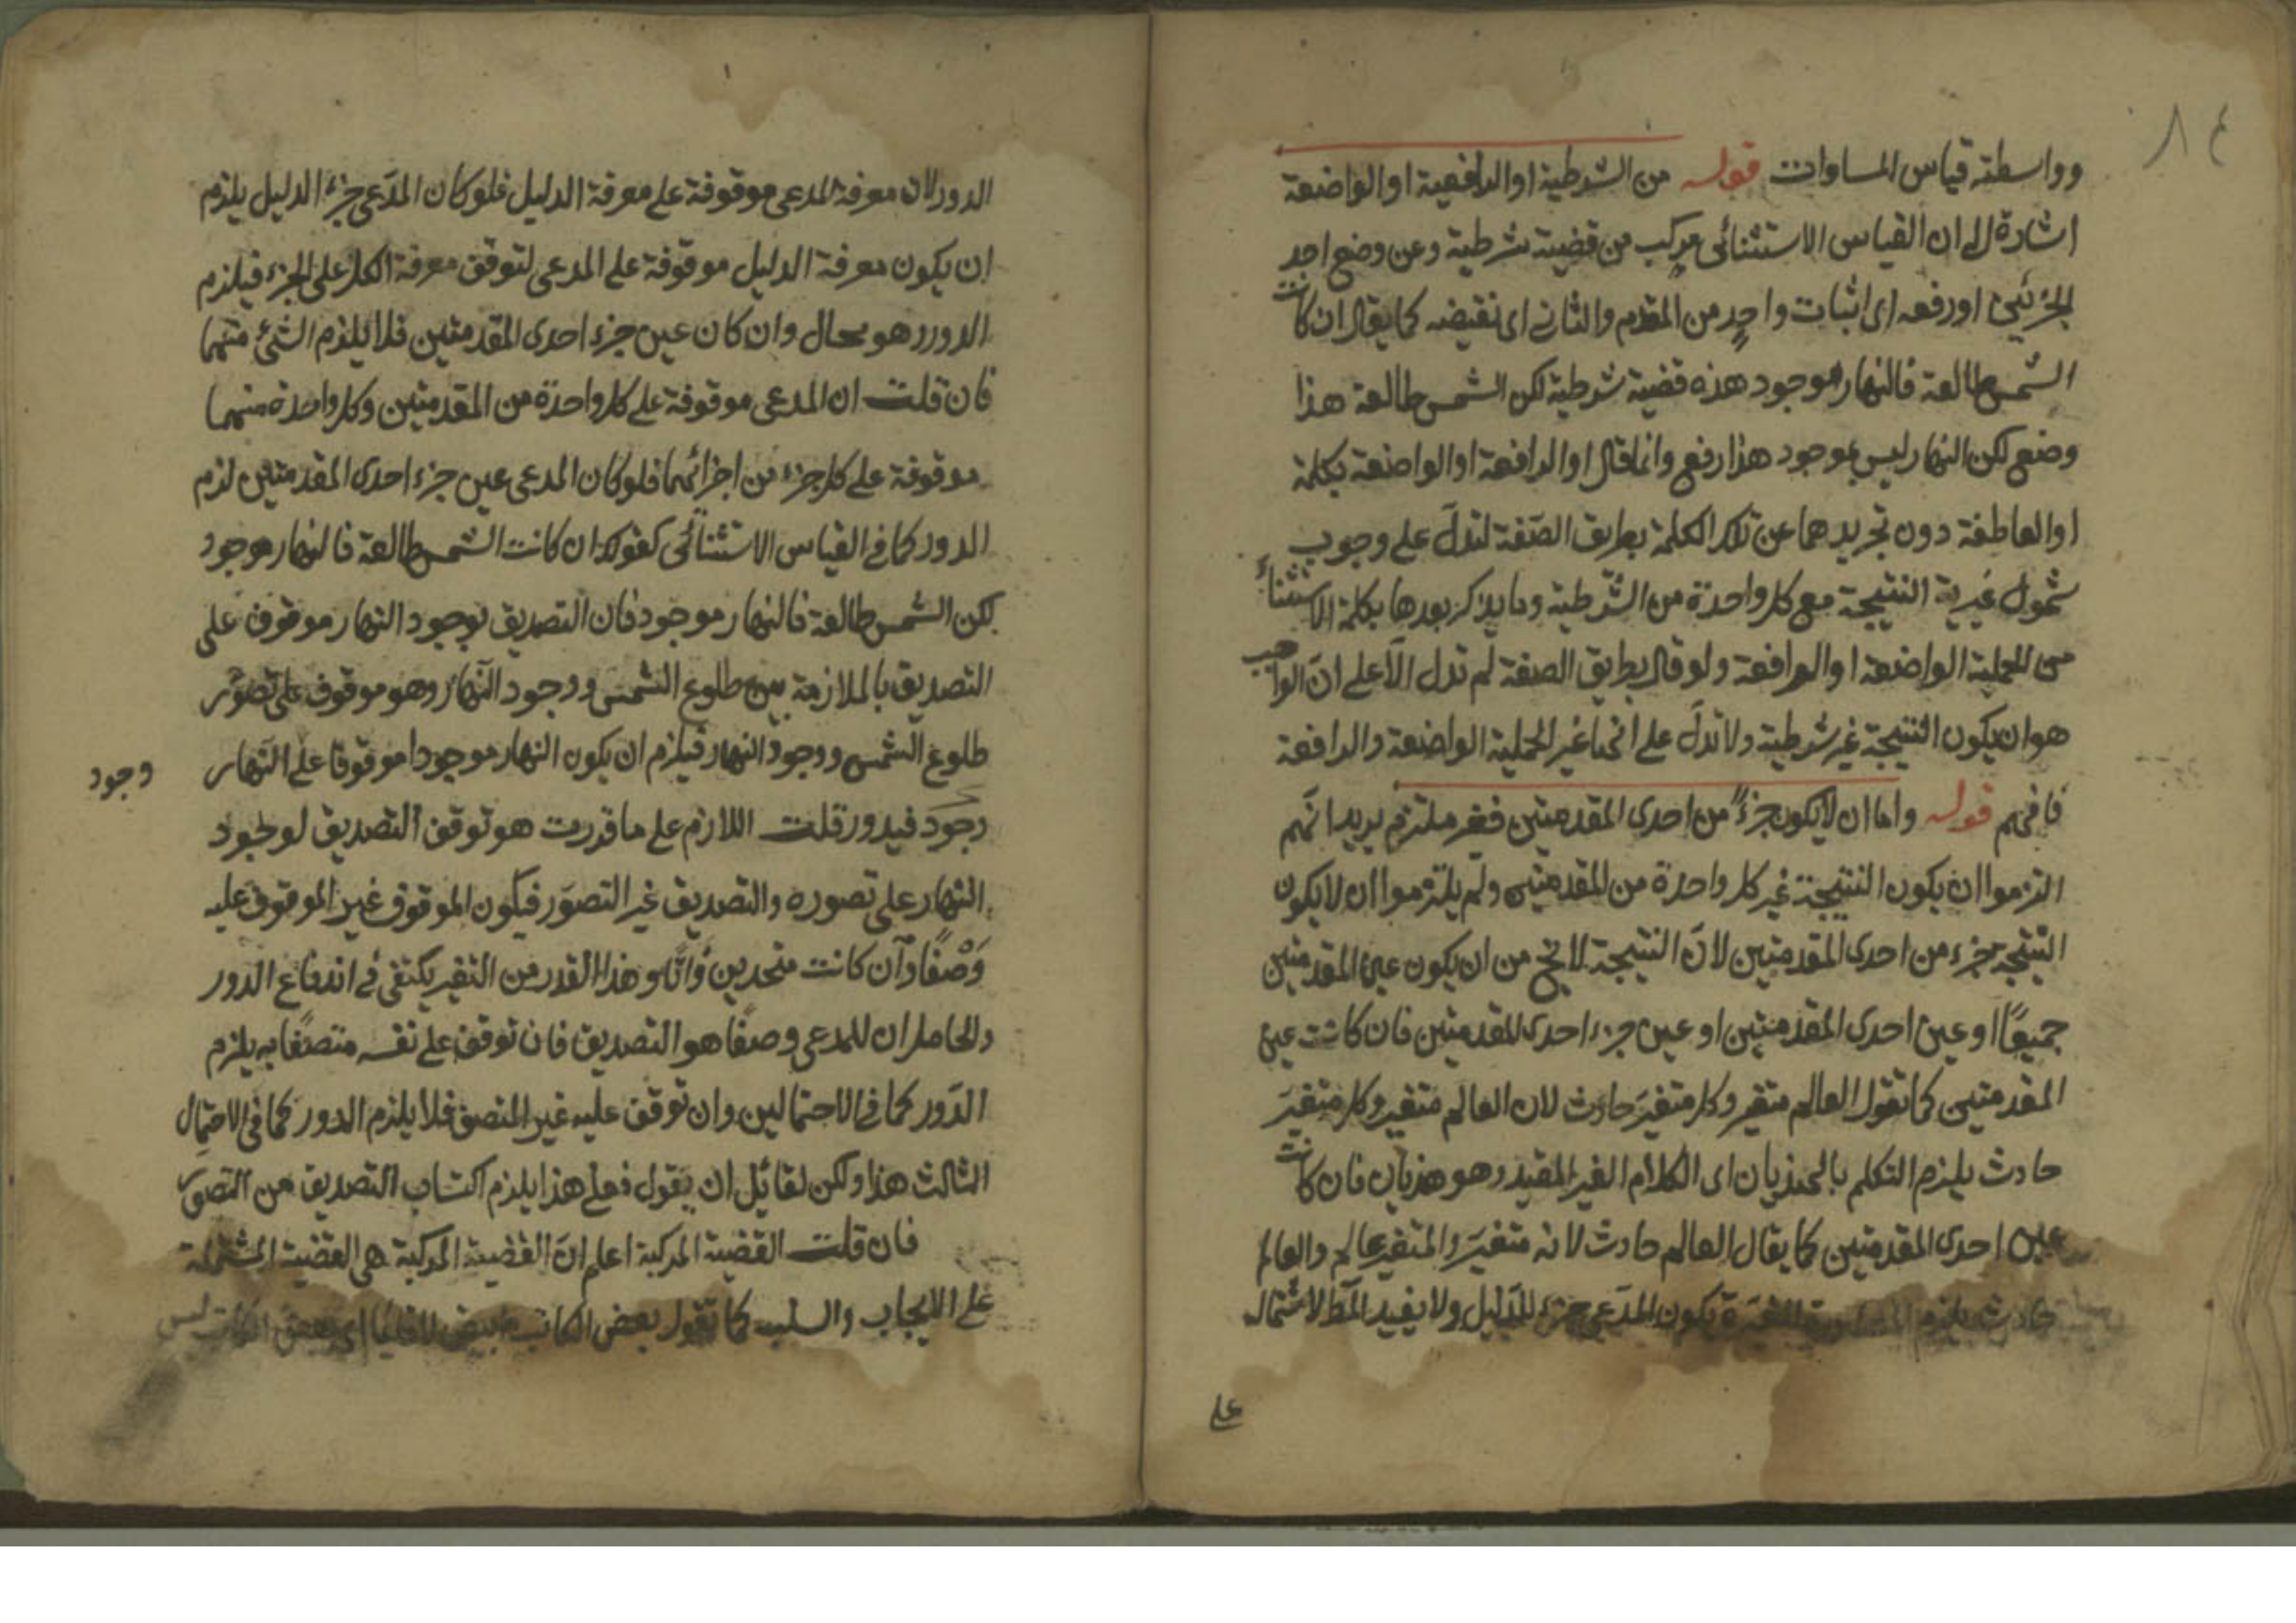 ٨٤
وواسطته قياس المساوات قوله من الشرطية او الرافعية او الواضعة
اشارة الى ان القياس الاستثنائى مركب من قضيته شرطية وعن وضع احد
الجزئين او رفعه اى اثبات واحد من المقدم والثانى اى نقيضه كما يقال ان كانت
الشمس طالعة فالنهار موجود هذه قضية شرطية لكن الشمس طالعة هذا
وضع لكن النهار ليس بموجود هذا رفع وانما قال او الرافعة او الواضعة بكلمة
او العاطفة دون تجريدهما عن تلك الكلمة بطريق الصّفة لتدلّ على وجوب
شمول غيرية النتيجة مع كل واحدة من الشّرطية وما يذكر بعدها بكلمة الاستثناء
من الحملية الواضعة او الرافعة ولو قال بطريق الصفة لم تدل الّا على انّ الواجب
هو ان يكون النتيجة غير شرطية ولا تدلّ على انها غير الحملية الواضعة والرافعة
فافهم قوله واما ان لا يكون جزءً من احدى المقدمتين فغير ملتزم يريد انّهم
التزموا ان يكون النتيجة غير كل واحدة من المقدمتين ولم يلتزموا ان لا يكون
النتيجة جزء من احدى المقدمتين لانّ النتيجة لا تخ من ان يكون عين المقدمتين
جميعًا او عين احدى المقدمتين او عين جزء احدى المقدمتين فان كانت عين
المقدمتين كما تقول العالم متغير وكل متغيّر حادث لان العالم متغير وكل متغيّر
حادث يلزم التكلم بالهذيان اى الكلام الغير المفيد وهو هذيان فان كانت
عين احدى المقدمتين كما يقال العالم حادث لانه متغيّر والمتغير عالم والعالم
حادث يلزم يكون المدّعى جزء للدّليل ولا يفيد المط لاشتماله
على
الدور لان معرفة المدعى موقوفة على معرفة الدليل فلو كان المدّعى جزء الدليل يلزم
ان يكون معرفة الدليل موقوفة على المدعى لتوقف معرفة الكل على الجزء فيلزم
الدور وهو محال وان كان عين جزء احدى المقدمتين فلا يلزم الشئ منهما
فان قلت ان المدعى موقوفة على كل واحدة من المقدمتين وكل واحدة منهما
موقوفة على كل جزء من اجزائهما فلو كان المدعى عين جزء احدى المقدمتين لزم
الدور كما فى القياس الاستثنائى كقولك ان كانت الشمس طالعة فالنهار موجود
لكن الشمس طالعة فالنهار موجود فان التصديق بوجود النهار موقوف على
التصديق بالملازمة بين طلوع الشمس ووجود النّهار وهو موقوف على تصوّر
طلوع الشمس ووجود النهار فيلزم ان يكون النهار موجودا موقوفا على النّهار
وجود
وجود فيدور قلت اللازم على ما قدرت هو توقف التصديق لوجود
النهار على تصوره والتصديق غير التصوّر فيكون الموقوف غير الموقوف عليه
وَصْفًا وان كانت متحدين ذاتًا وهذا القدر من التغير يكتفى فى اندفاع الدور
والحاصل ان للمدعى وصفًا هو التصديق فان توقف على نفسه متصفًا به يلزم
الدّور كما فى الاحتمالين وان توقف عليه غير المتصف فلا يلزم الدور كما فى الاحتمال
الثالث هذا ولكن لقائل ان يقول فعلى هذا يلزم اكتساب التصديق من التصوّر
فان قلت القضية المركبة اعلم انّ القضية المركبة هى القضية المشتملة
على الايجاب والسلب كما تقول بعض الكاتب اى بعض الكاتب ليس